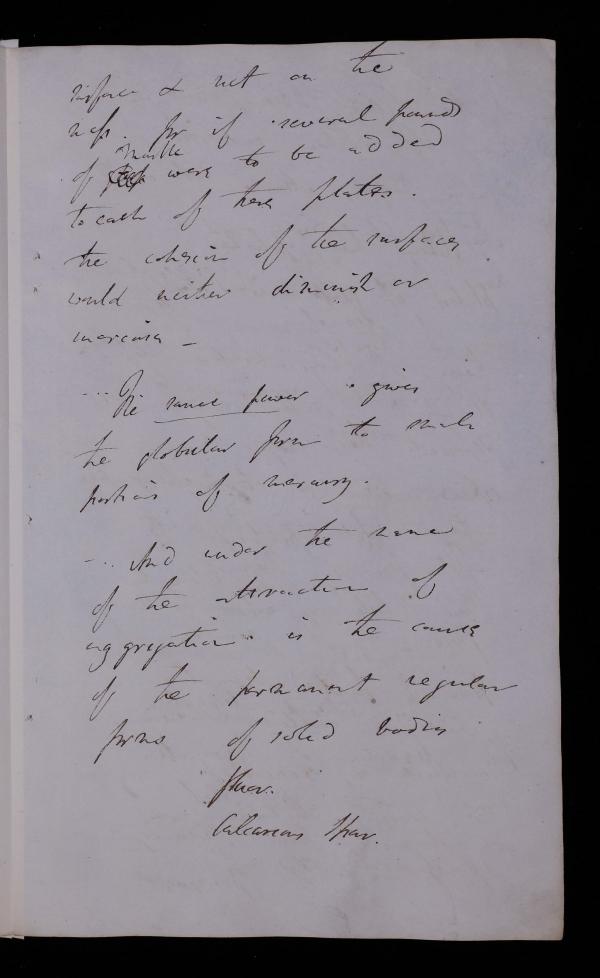 surface & not on the
mass. for if several pounds
of marble were to be added
to each of these plates.
the cohesion of the surfaces
would neither diminish or
increase –
... The same power gives
the globular form to small
portions of mercury.
–.. And under the name
of the attraction of
aggregation is the cause
of the permanent regular
forms of solid bodies
fluor.
Calcareous Spar.